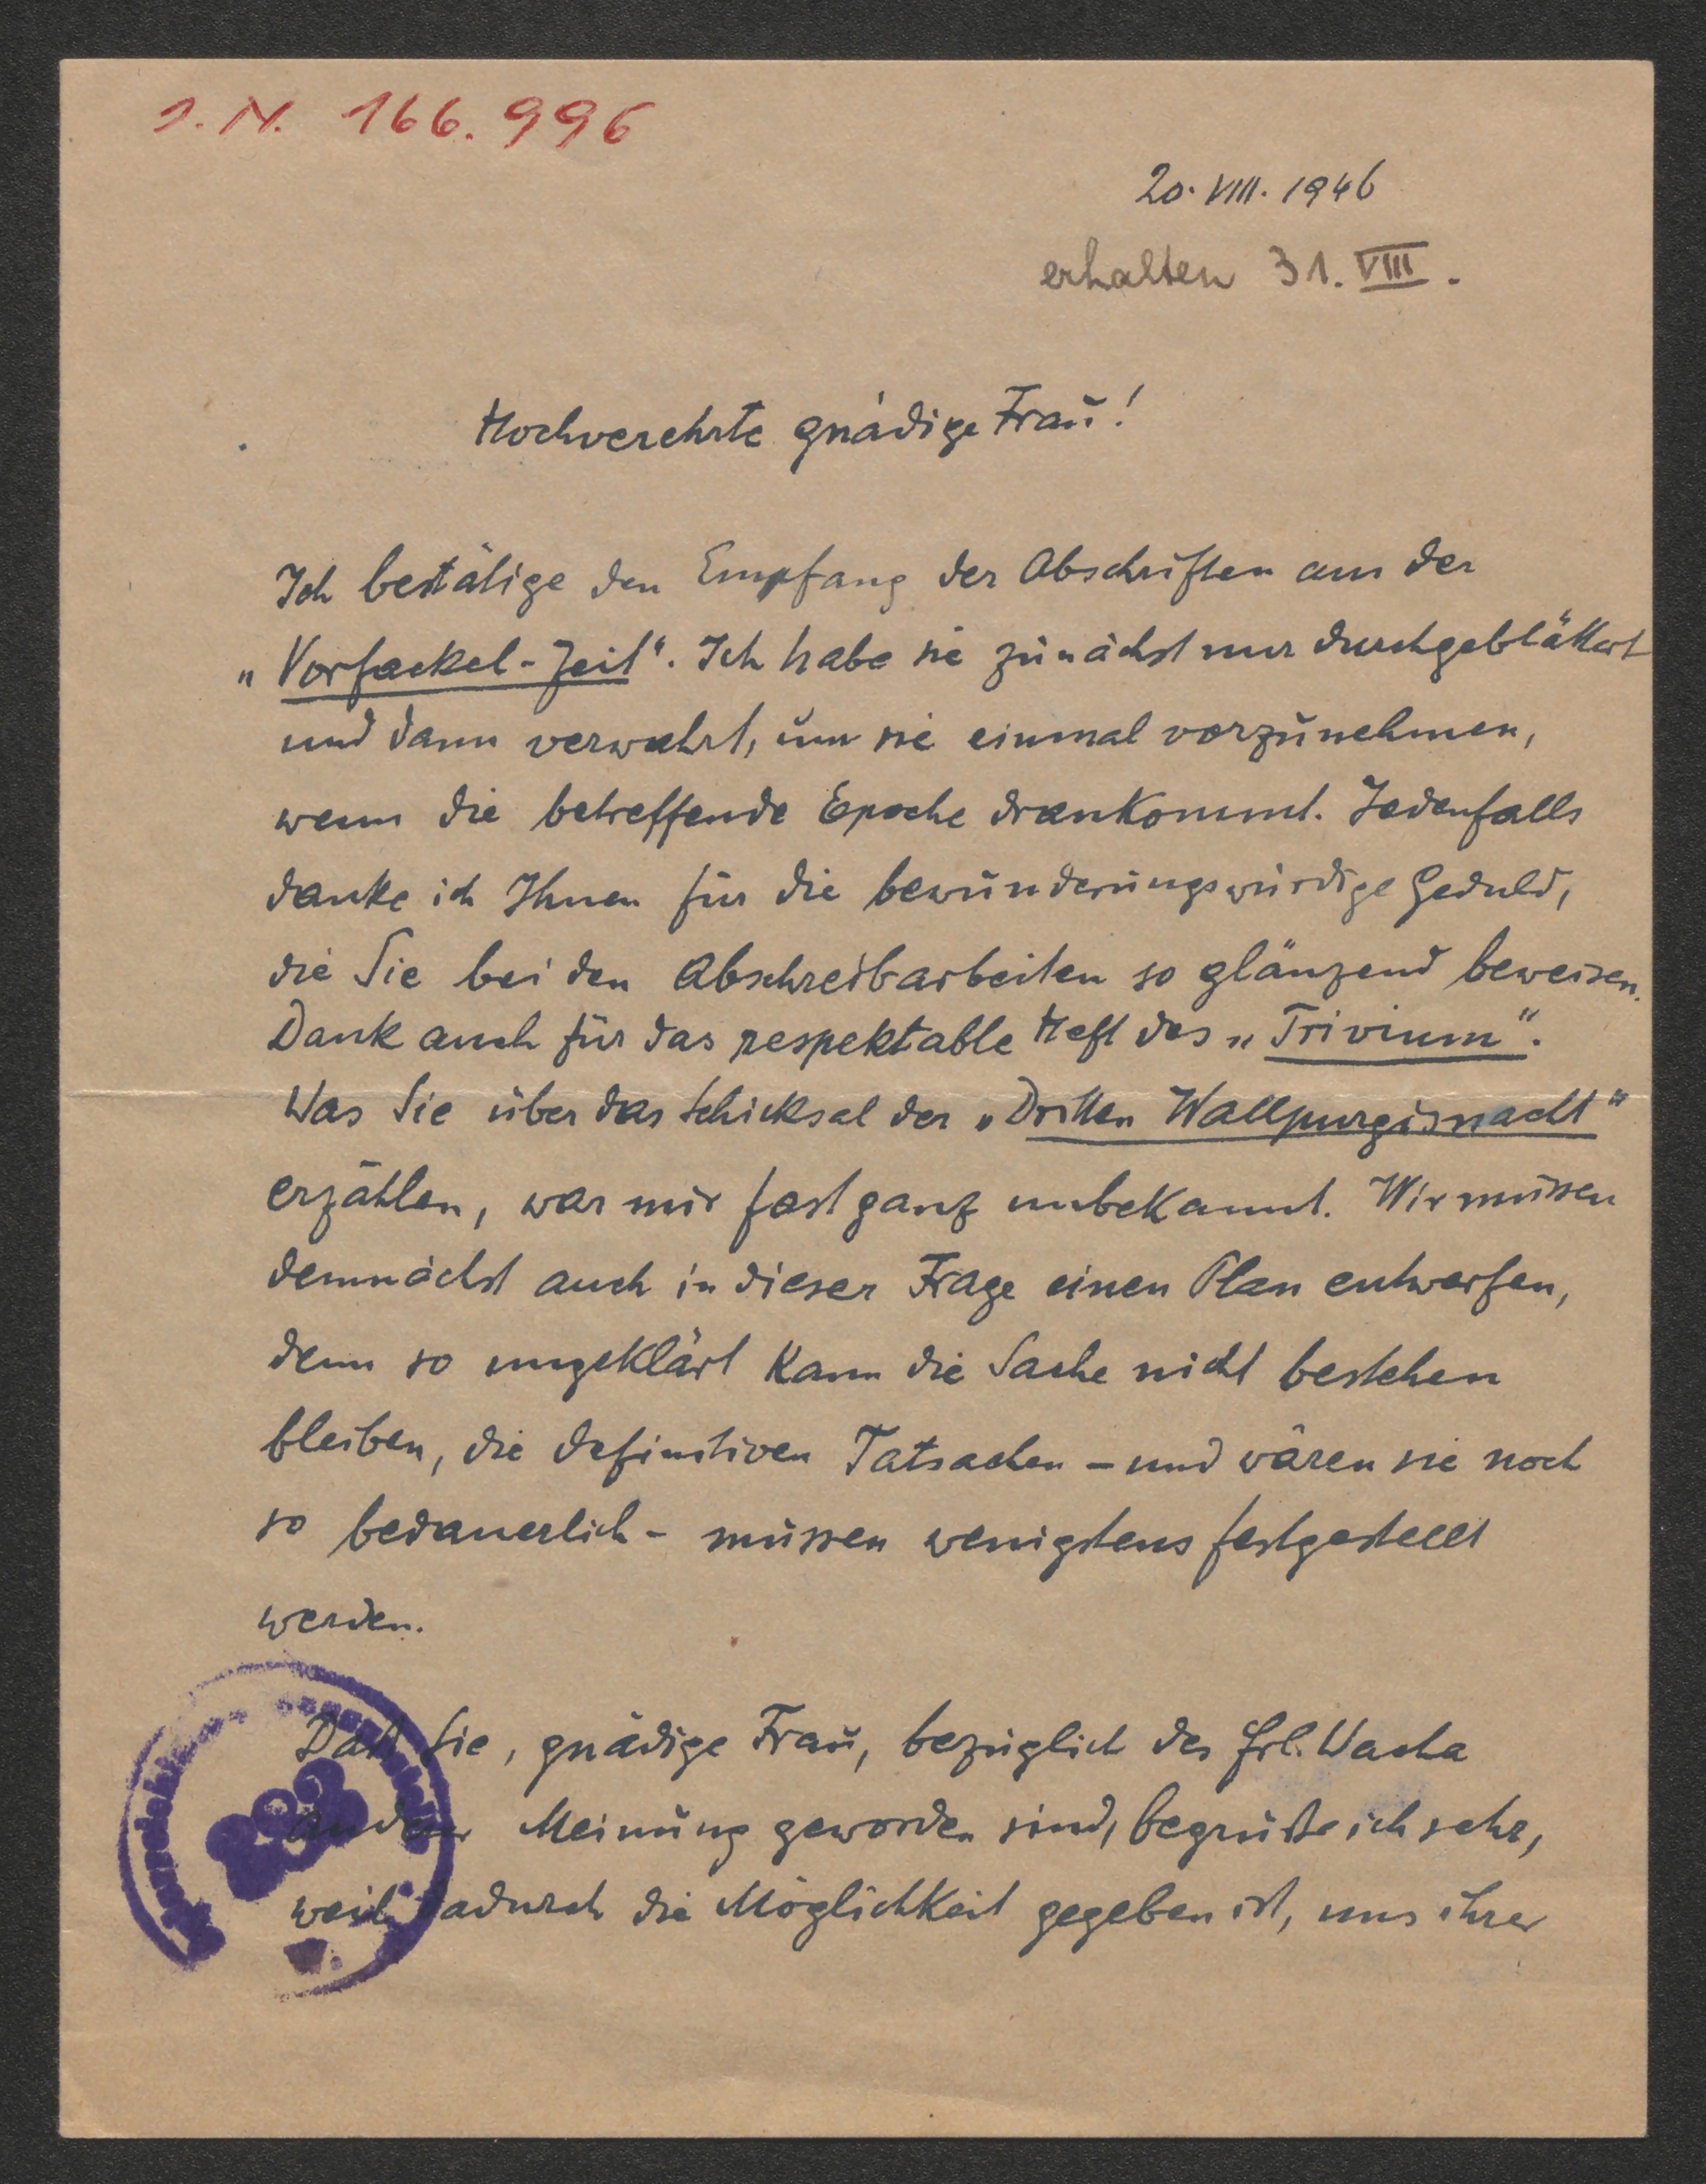 J. N. 166.996
20. VIII. 1946
erhalten 31. VIII.
Hochverehrte gnädige Frau!
Ich bestätige den Empfang der Abschriften aus der
„Vorfackel-Zeit“. Ich habe sie zunächst nur durchgeblättert
und dann verwahrt, um sie einmal vorzunehmen,
wenn die betreffende Epoche drankommt. Jedenfalls
danke ich Ihnen für die bewunderungswürdige Geduld,
die Sie bei den Abschreibarbeiten so glänzend beweisen.
Dank auch für das respektable Heft des „Trivium“.
Was Sie über das Schicksal der „Dritten Wallpurgisnacht“
erzählen, war mir fast ganz unbekannt. Wir müssen
demnächst auch in dieser Frage einen Plan entwerfen,
denn so ungeklärt kann die Sache nicht bestehen
bleiben, die definitiven Tatsachen – und wären sie noch
so bedauerlich – müssen wenigstens festgestellt
werden.
Daß Sie, gnädige Frau, bezüglich des Frl. Wacha
andrer Meinung geworden sind, begrüße ich sehr,
weil dadurch die Möglichkeit gegeben ist, uns ihrer